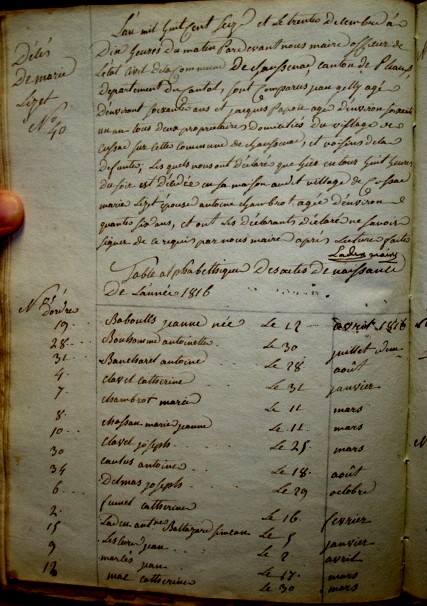 L'an mil huit cent seize et le trente decembre à
Dix heures du matin Pardevant nous maire officier de
letat civil de la commune De chaussenac, canton de Pleaux,
departement du Cantal, sont comparus jean gilly agé
d'environ soixante ans et jacques agé d'environ soixante
un an tous deux proprietaires domiciliés du village de
cussac sur cette commune de chaussenac, et voisins de la
defunte, lesquels nous ont déclaré que hier en lous huit heures
du soir est décédée en sa maison audit village de cussac
marie Lizet épouse antoine chambrot agée d'environ
quante six ans, et ont les déclarants déclaré ne savoir
signer de ce requis par nous maire apres lecture faite
Déces
De marie
Lizet
N° 40
Table alphabettique Des actes de naissance
De L'année 1816
Nos D'ordre
19 Baboulls jeanne née Le 12 avril 1816
28 Bouhomme antoinette Le 30 juillet idem
31 Bancharel antoine Le 28 août
4 clavel catherine Le 31 janvier
7 chambrot marie Le 11 mars
8 chassan marie jeanne Le 11 mars
10 clavel joseph Le 25 mars
30 cantus antoine Le 18 août
34 Delmas joseph Le 29 octobre
6 fumel catherine Le 16 fevrier
2 Baltazard simeon Le 5 janvier
15 jean Le 2 avril
9 jean Le 17 mars
12 mas catherine Le 30 mars